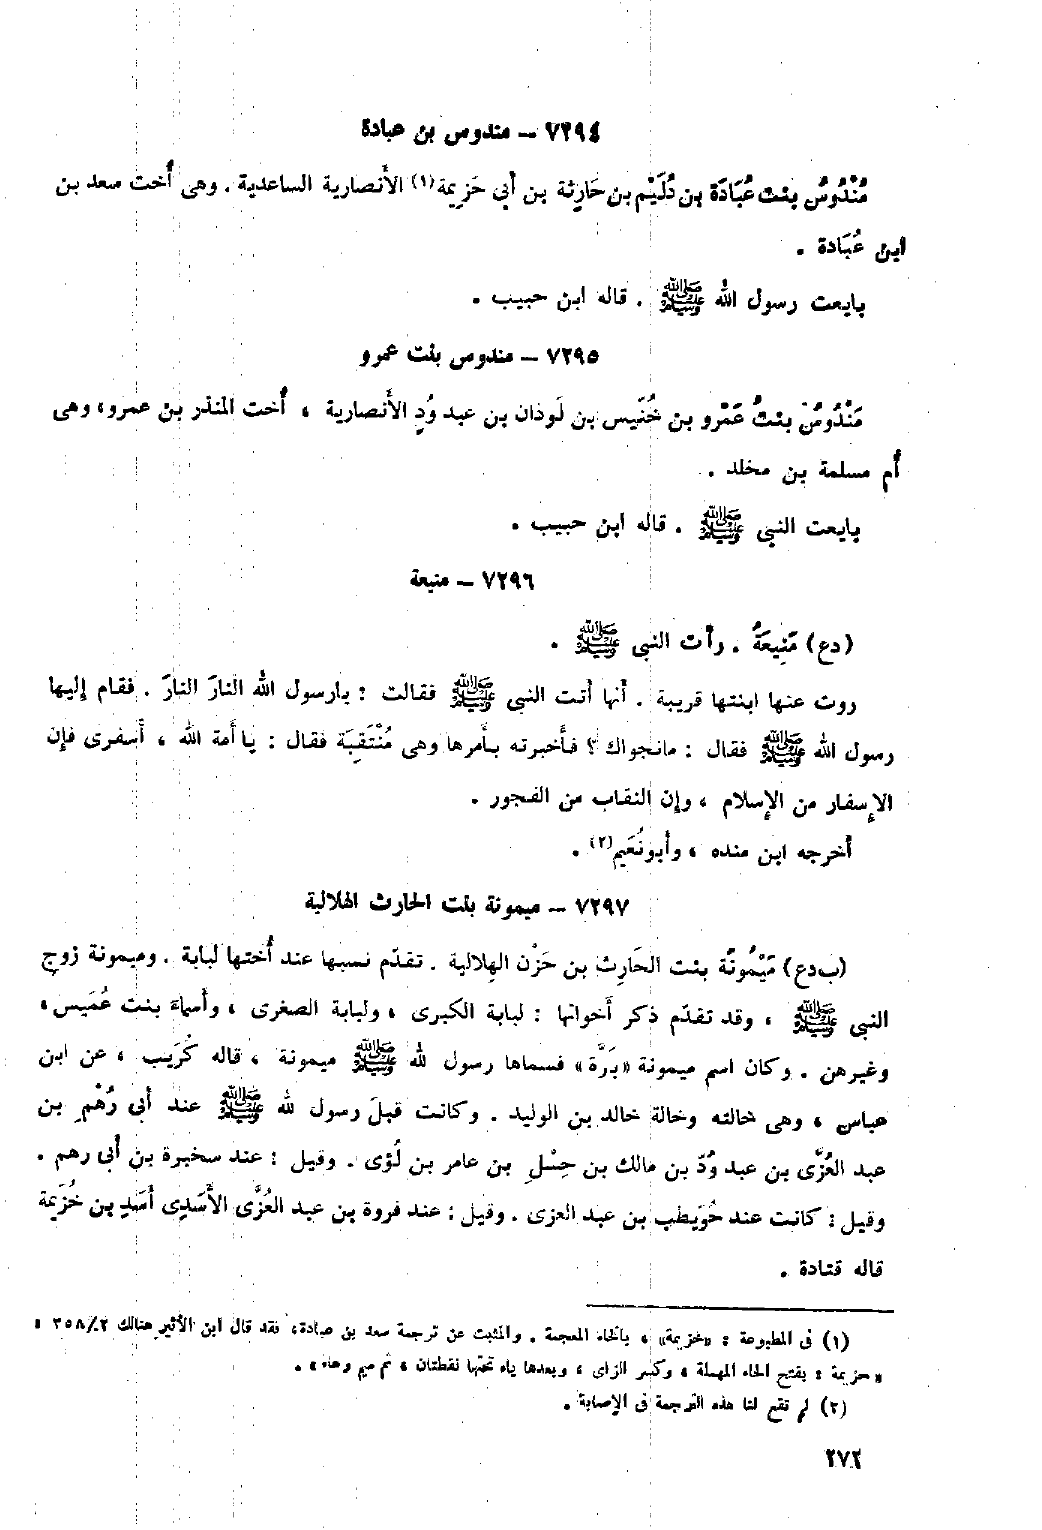 ٧٢٩٤ – مندوس بن عبادة
مُنْدُوسُ بنت عُبَادَة بن دُلَيْم بن حَارِثة بن أبى حَزِيمة(١) الأَنصارية الساعدية . وهى أُخت سعد بن
ابن عُبَادة .
بايعت رسول الله ﷺ . قاله ابن حبيب .
٧٢٩٥ – مندوس بنت عمرو
مَنْدُوسُ بنتُ عَمْرو بن خُنَيس بن لَوذان بن عبد وُدٍ الأَنصارية ، أُخت المنذر بن عمرو، وهى
أُم مسلمة بن مخلد .
بايعت النبى ﷺ . قاله ابن حبيب .
٧٢٩٦ – منيعة
(دع) مَنِيعَةُ . رأت النبى ﷺ .
روت عنها ابنتها قريبة . أنها أتت النبى ﷺ فقالت : يارسول الله النارَ النارَ . فقام إليها
رسول الله ﷺ فقال : مانجواك ؟ فأخبرته بأمرها وهى مُنْتَقِبَة فقال : يا أمة الله ، أسفرى فإن
الإسفار من الإسلام ، وإن النقاب من الفجور .
أخرجه ابن منده ، وأبونُعَيم(٢) .
٧٢٩٧ – ميمونة بنت الحارث الهلالية
(ب‌دع) مَيْمُونَة بنت الحَارِث بن حَزْن الهِلالية . تقدّم نسبها عند أُختها لبابة . وميمونة زوج
النبى ﷺ ، وقد تقدّم ذكر أخواتها : لبابة الكبرى ، ولبابة الصغرى ، وأسماءَ بنت عُمَيس،
وغيرهن . وكان اسم ميمونة «بَرَّة» فسماها رسول لله ﷺ ميمونة ، قاله كُرَيب ، عن ابن
عباس ، وهى خالته وخالة خالد بن الوليد . وكانت قبلَ رسول لله ﷺ عند أبى رُهْمِ بن
عبد العُزَّى بن عبد وُدّ بن مالك بن حِسْلِ بن عامر بن لُؤى . وقيل : عند سخبرة بن أبى رهم .
وقيل : كانت عند حُوَيطب بن عبد العزى . وقيل : عند فروة بن عبد العُزَّى الأَسَدِى أَسَدِ بن خُزَيمة
قاله قتادة .
(١) فى المطبوعة : «خزيمة» ، بالخاء المعجمة . والمثبت عن ترجمة سعد بن عبادة، فقد قال ابن الأثير هنالك ٣٥٨/٢ :
«حزيمة : بفتح الحاء المهملة ، وكسر الزاى ، وبعدها ياء تحتها نقطتان ، ثم ميم وهاء» .
(٢) لم تقع لنا هذه الترجمة فى الإصابة .
٢٧٢